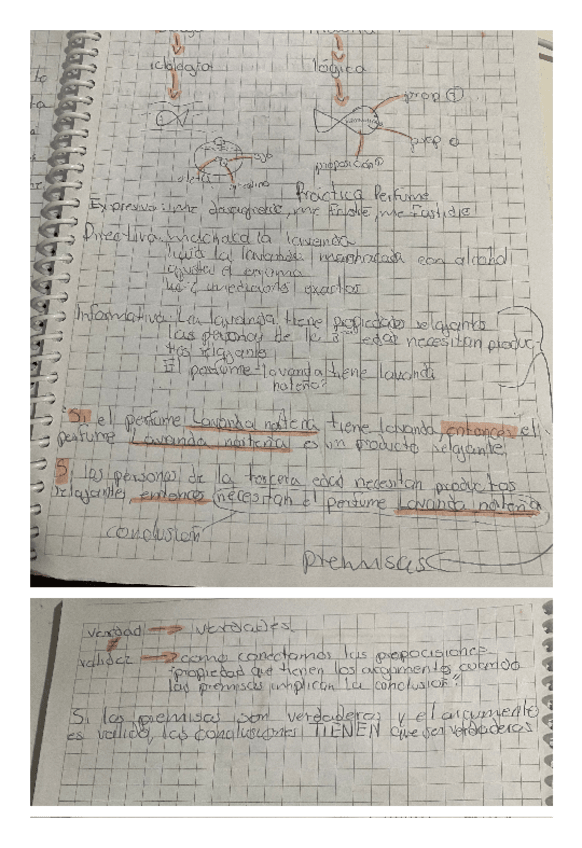 ictiología
lógica
prop ①
prop
proposición
Practica Perfume
Expresiva: me da, me Frustre, me Fastidie
Directiva: machaca la lavanda
la lavanda machacada con alcohol
mediciones exactas
Informativa: La lavanda tiene propiedades relajante
Las personas de la 3 edad necesitan produc
tos relajante
El perfume lavanda tiene lavanda
nateña?
"Si el perfume Lavanda nateña tiene lavanda, entonces el
perfume Lavanda nateña es un producto relajante
Si las personas de la tercera edad necesitan productos
relajantes, entonces necesitan el perfume Lavanda nateña
conclusión
premisas
verdad → verdades.
validez → como conectamos las proposiciones
"propiedad que tienen los argumentos cuando
las premisas implican la conclusión"
Si las premisas son verdaderas y el argumento
es valido, las conclusiones TIENEN que ser verdaderas